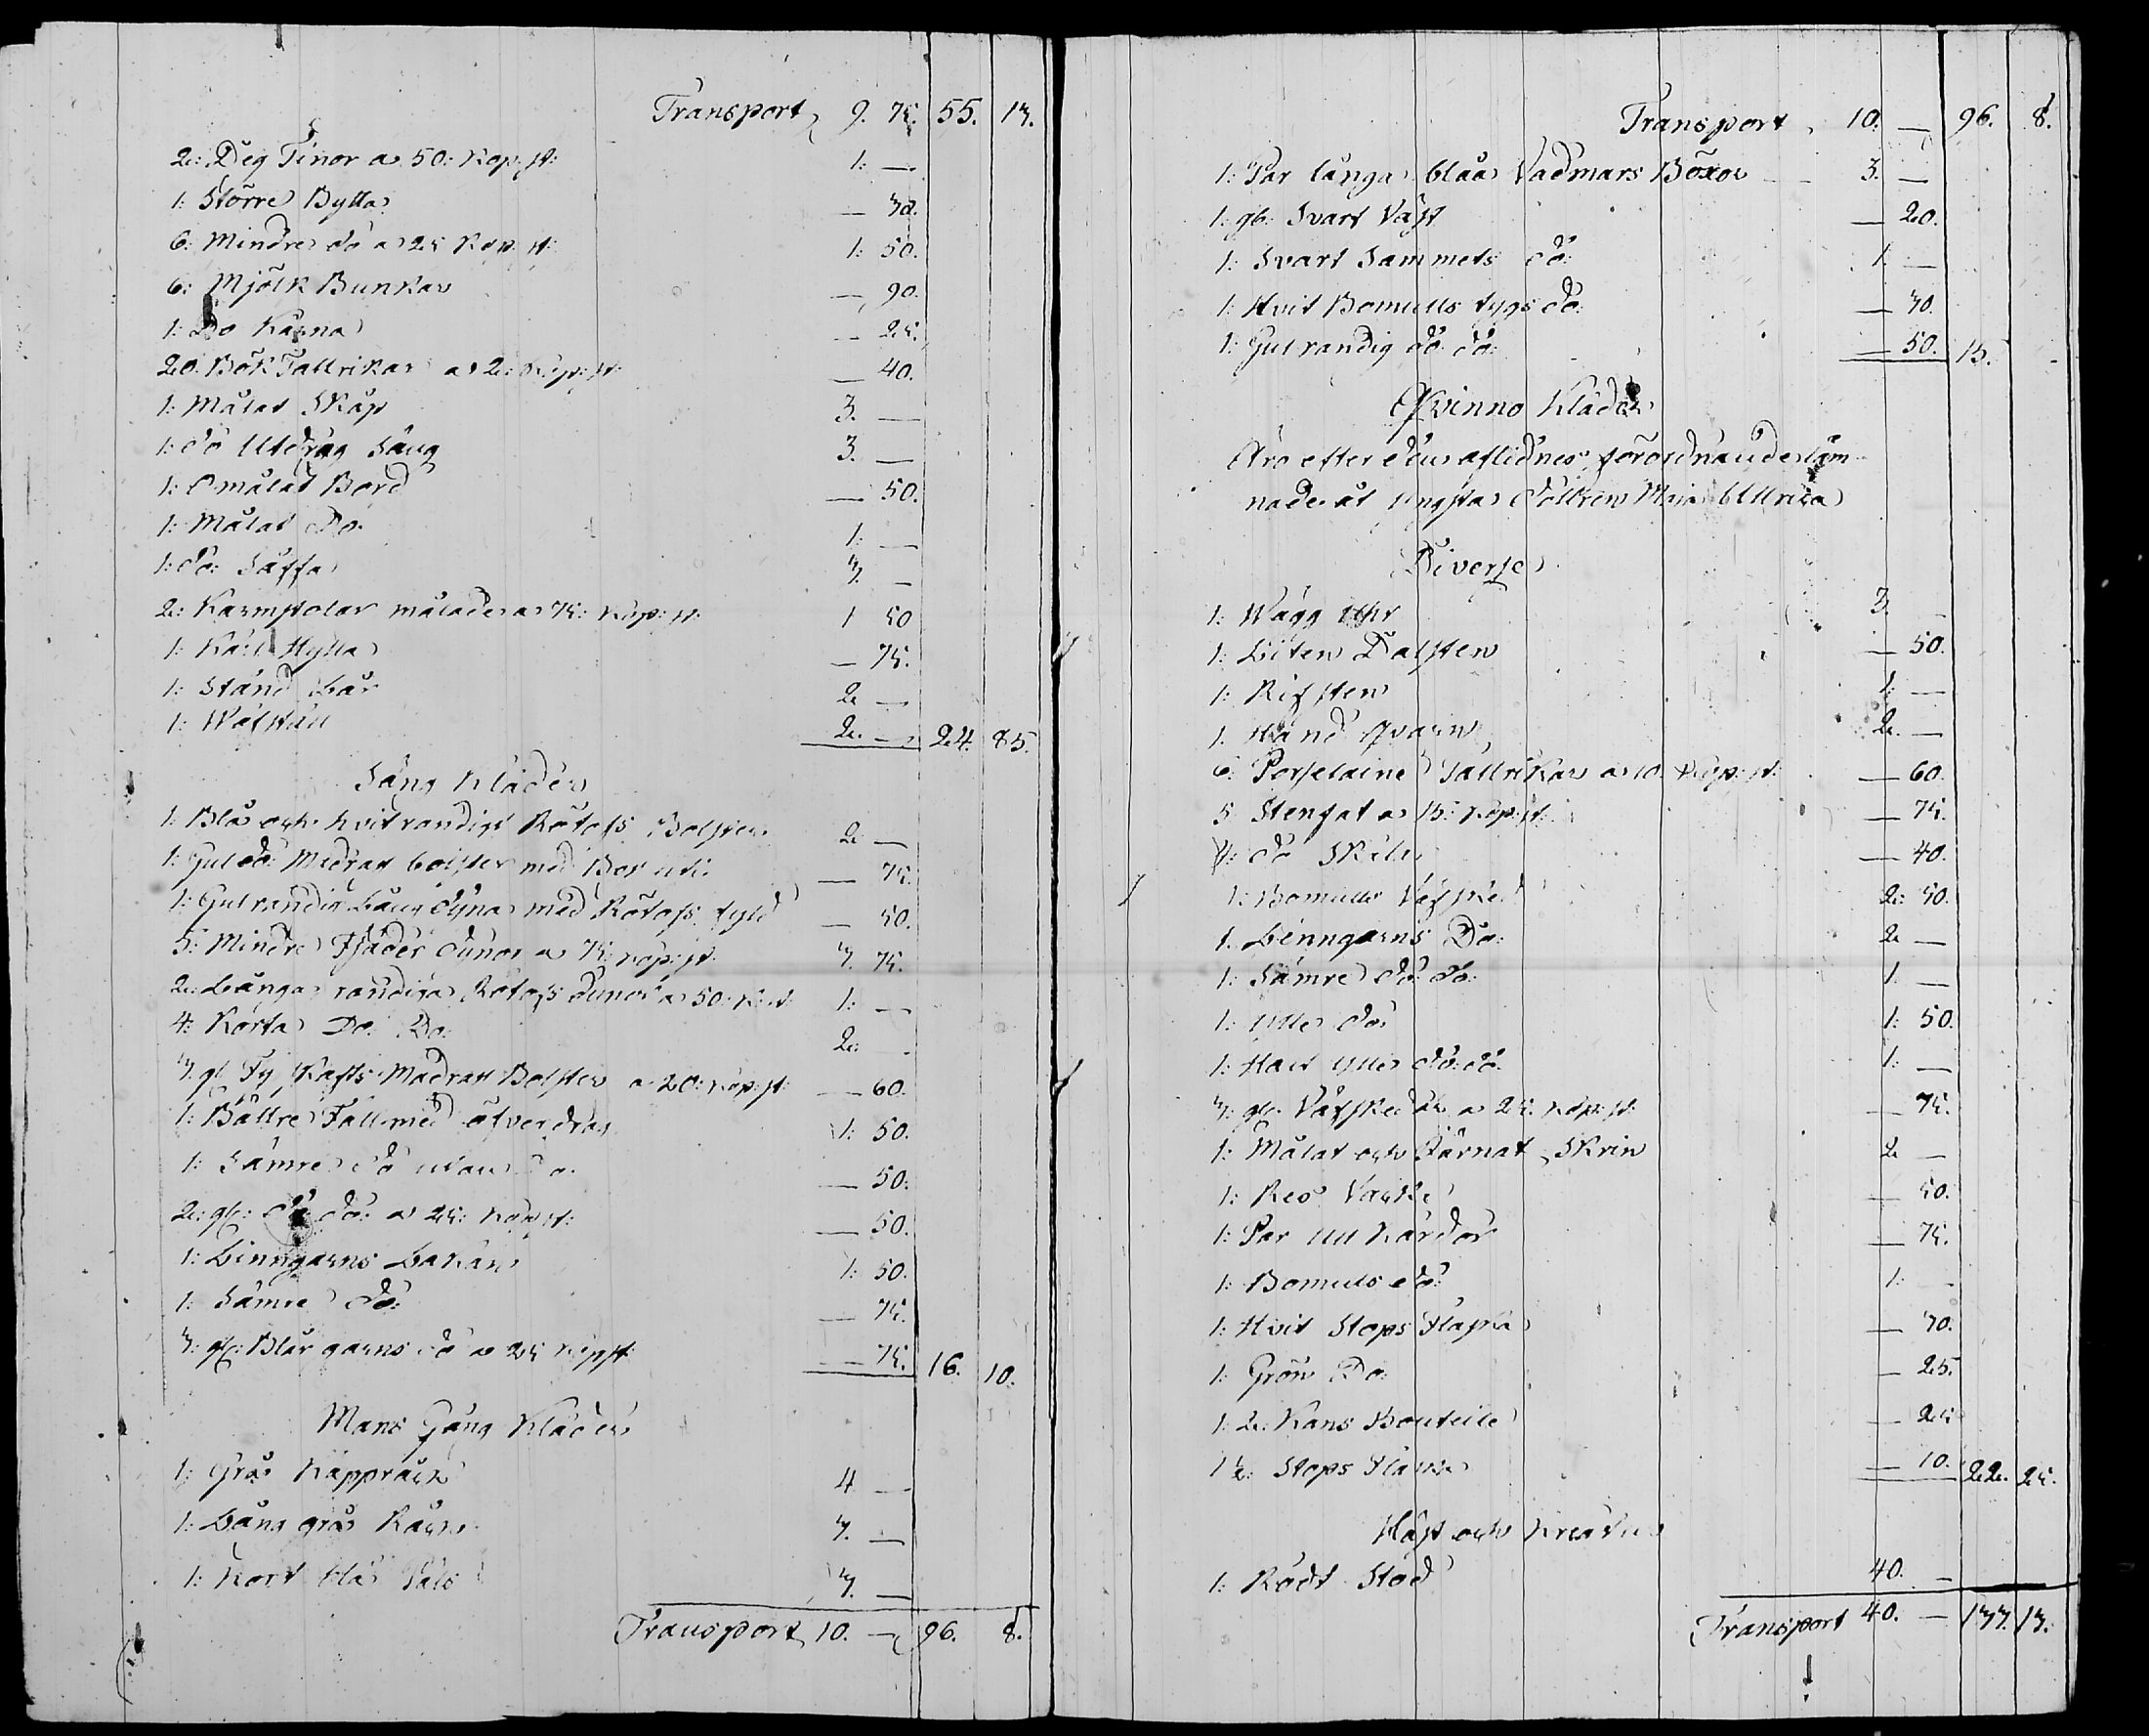 Transport 9. 75. 55. 13.
2: Deg Tinor a 50: Kop: st: 1: —
1: Större Bytta — 30.
6: Mindre do a 25 Kop: st: 1: 50.
6: Mjölk Bunkar — 90.
1: Do Kärna — 25.
20. Bök Tallrikar a 2: Kop: st: — 40.
1: Målat Skåp 3. —
1: do Utdrag Säng 3. —
1: Omålat Bord — 50.
1: Målat Do. 1: —
1: do: Säffa 3. —
2: Karmstolar målade a 75: Kop: st: 1 50
1: Kärl Hylla — 75.
1: Stånd 2 —
1: Wäfställ 2. — 24. 85.
Säng Kläder
1: Blå och hvitrandigt Rötafs Bolster 2 —
1: Gul do: Madrat bolster med Bos uti — 75.
1: Gulrandig Lång dÿna med Rötafs fyld — 50.
5: Mindre Fjäder dynor a 75: kop: st. 3. 75.
2: Långa randiga Rötafs dÿnor a 50: K: st: 1: —
4: Korta Do. Do. 2: -
3. gl Madrats Bolster a 20: kop: st: — 60.
1: Bättre Fäll med öfverdrag 1: 50.
1: Sämre do utan Do. — 50.
2: gl: do: do: a 25: Kop st: — 50.
1: Linngarns Lakan 1: 50.
1: Sämre do: — 75.
3: gl: Blårgarns do a 25 kop st: — 75. 16. 10.
Mans Gång Kläder
1: Grå Kappråck 4 —
1: Lång grå Råck 3. —
1: Kort blå 3. —
Transport 10. — 96. 8.
Transport 10. — 96. 8.
1: Par långa blåa Vadmars Böxor 3. —
1: gl: Svart Väst — 20.
1: Svart Sammets do: 1. —
1: Hvit Bomulls tygs do: — 30.
1: Gul randig do: do: — 50. 15. -
Qvinno Kläder
Äro efter den aflidnes förordnande läm-
nade åt yngsta dottren Maja Ullrica
Diverse
1: Wägg Uhr 3. -
1: Liten Dalsten — 50.
1: Rifsten 1: —
1. Hand Qvarn 2. —
6: Porselaine Tallrikar a 10. Kop: st: — 60.
5 Stenfat a 15: kop: st: — 75.
4: do Skålar — 40.
1: Bomulls Väfsked 2: 50.
1. Linngarns Do: 2 —
1: Sämre do: do: 1. —
1: Ylle do: 1: 50.
1: Half Ylle do: do: 1: —
3: gl: Väfskedar a 25: kop: st: — 75.
1: Målat och Järnat Skrin 2 —
1: Res — 50.
1: Par Ull Kardor — 75.
1: Bomuls do: 1: -
1: Hvit Stops Flaska — 30.
1: Grön Do: — 25.
1: 2: Kans Bouteile — 25
1 ½: Stops Flaska — 10. 22. 25.
Häst och Kreatur
1: Rödt Stod 40. —
Transport 40. — 133. 13.